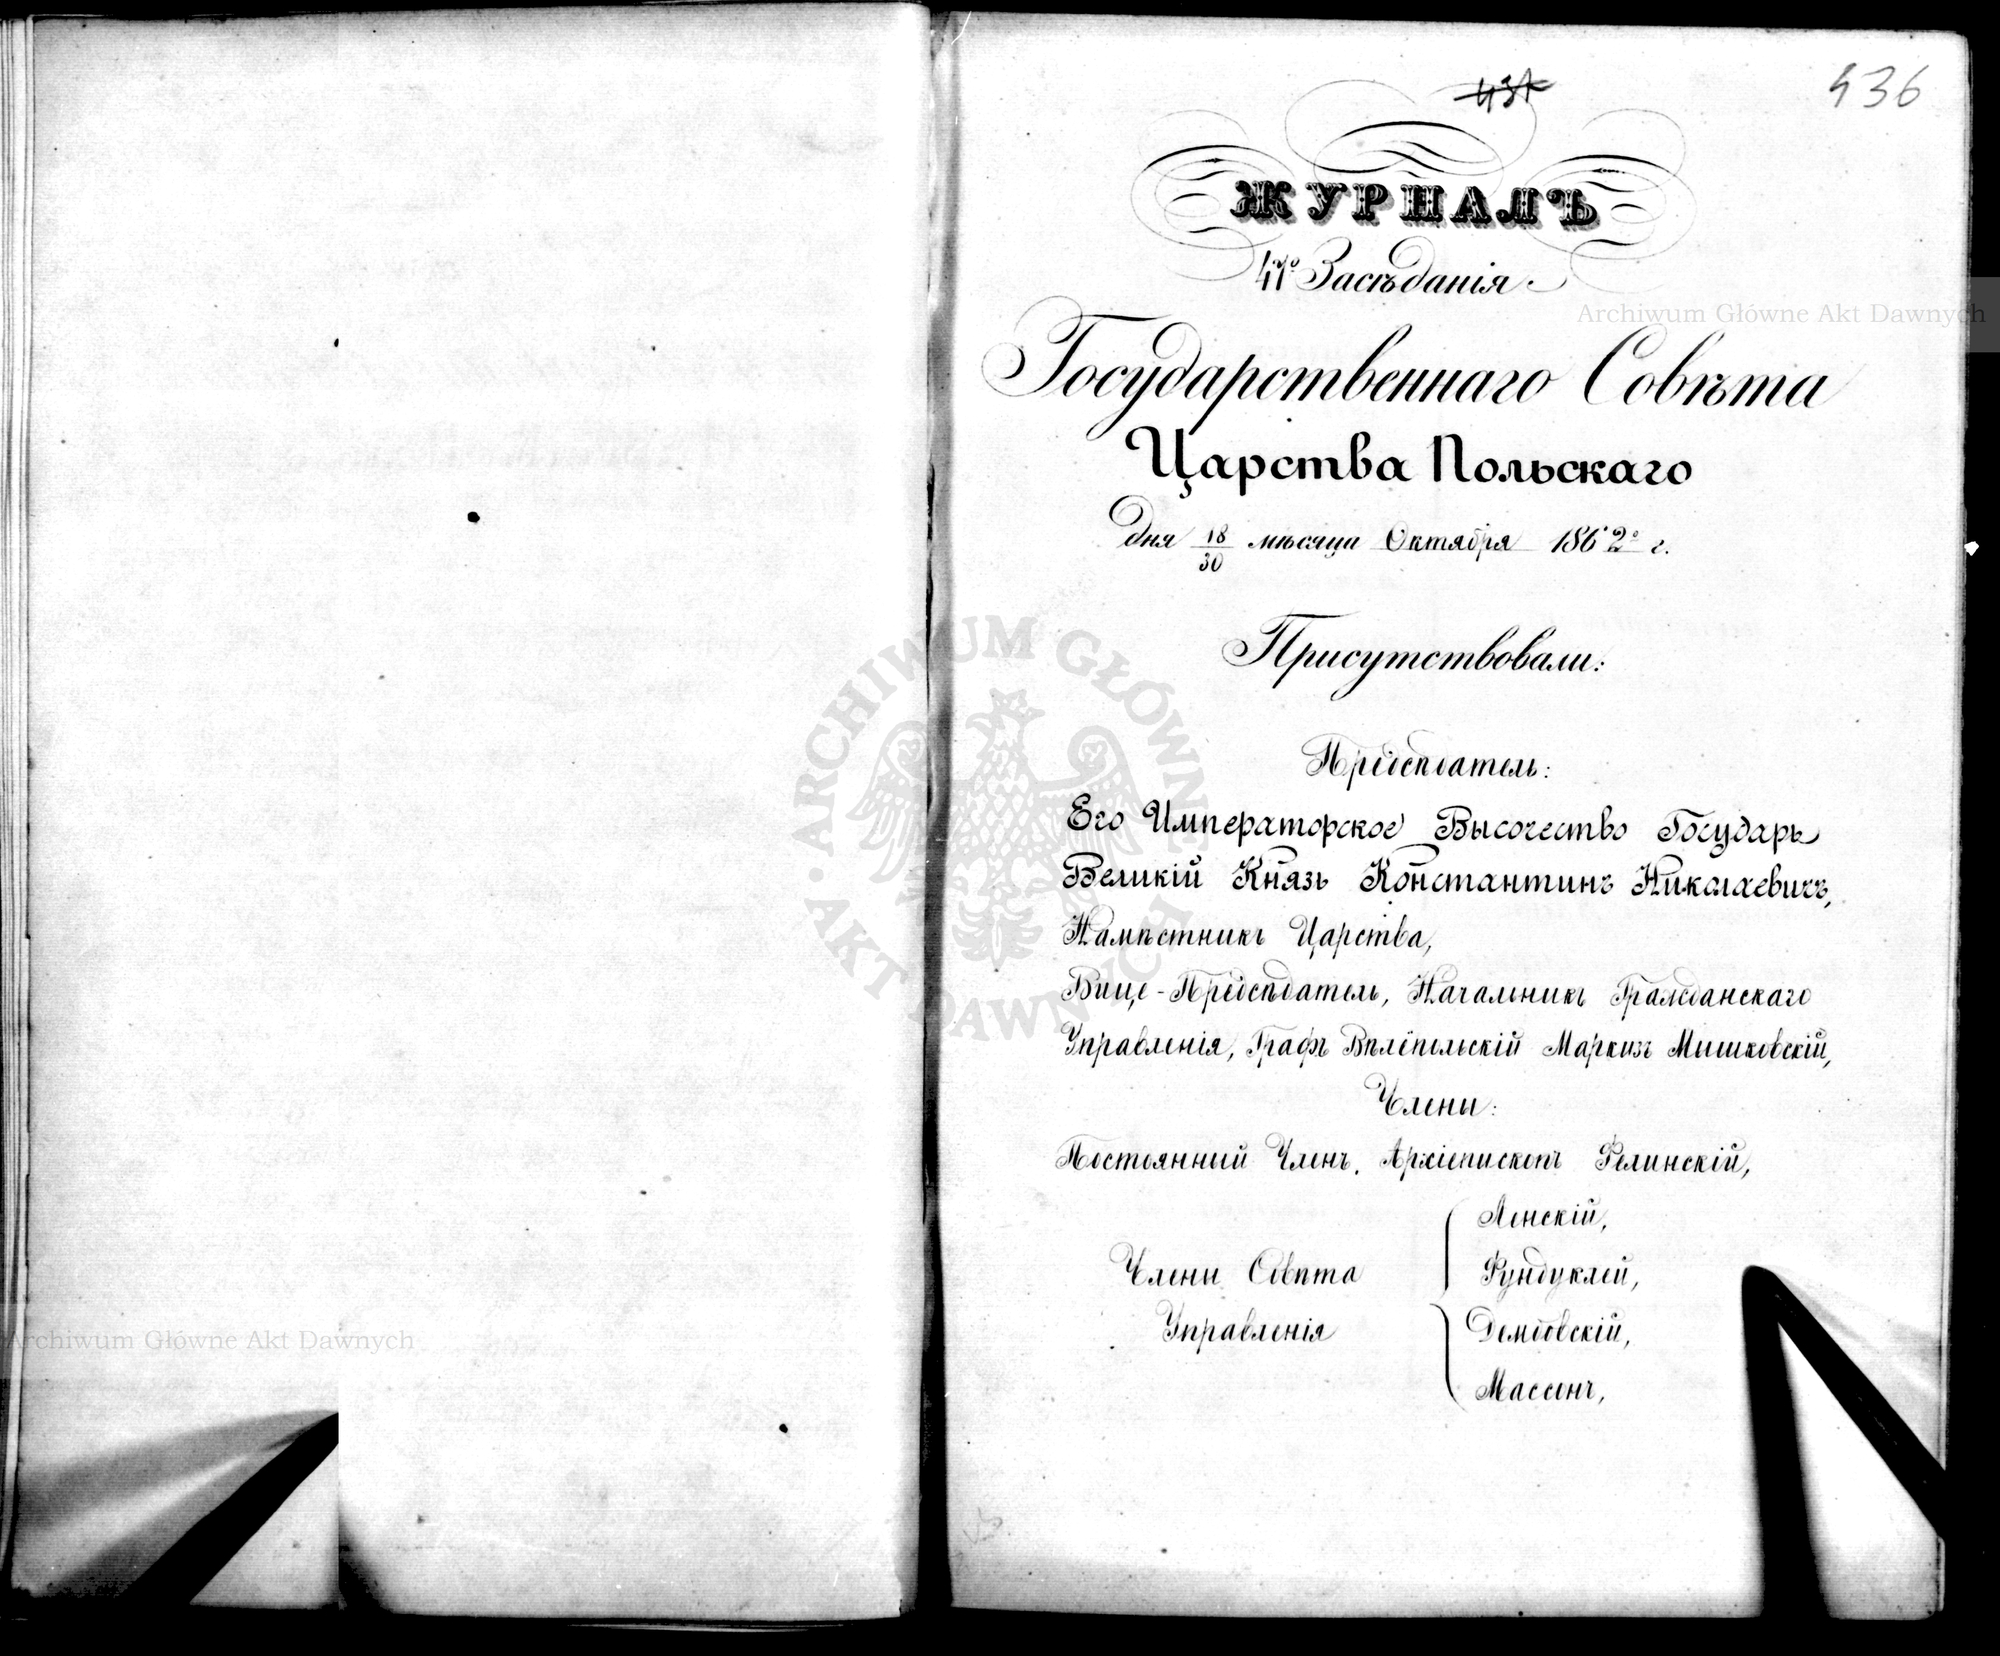 436
ЖУРНАЛЪ
41го Засѣданія
Archiwum Główne Akt Dawnych
Государственнаго Совѣта
Царства Польскаго
Дня 18/30 мѣсяца Октября 1862о г.
Присутствовали:
Предсѣдатель:
Его Императорское Высочество Государь
Великій Князь Константинъ Николаевичъ,
Намѣстникъ Царства,
Вице-Предсѣдатель, Начальникъ Гражданскаго
Управленія, Графъ Вѣлёпольскій Маркизъ Мышковскій,
Члены:
Постоянный Членъ, Архіепископъ Фелинскій,
Члены Совѣта
Управленія
Ленскій,
Фундуклей,
Дембовскій,
Массонъ,
ARCHIWUM GŁÓWNE
AKT DAWNYCH
Archiwum Główne Akt Dawnych